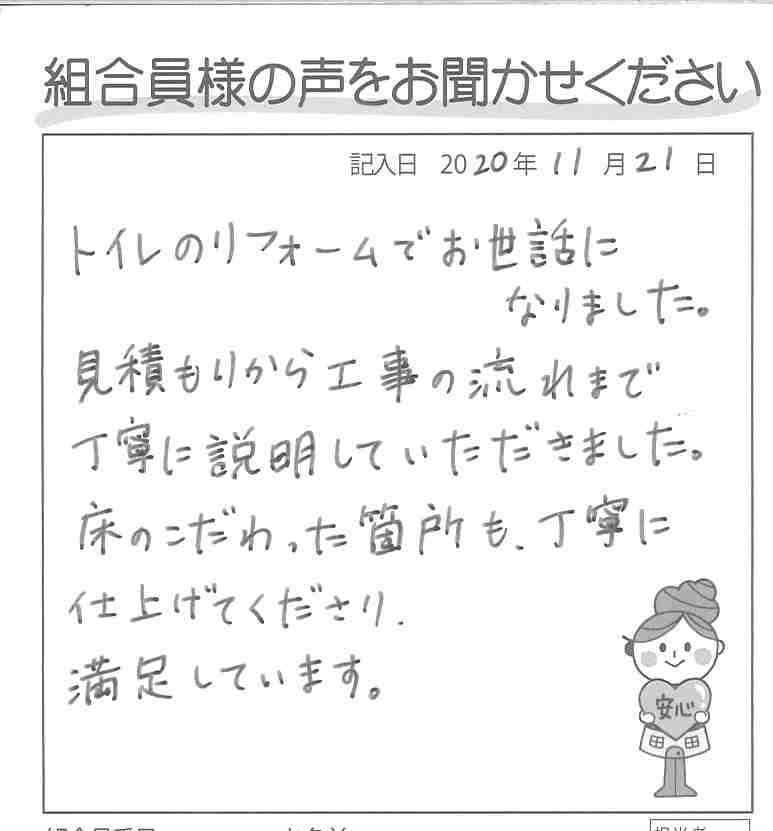 組合員様の声をお聞かせください
記入日 2020年 11月21日
トイレのリフォームでお世話に
なりました。
見積もりから工事の流れまで
丁寧に説明していただきました。
床のこだわった箇所も、丁寧に
仕上げてくださり、
満足しています。
安心